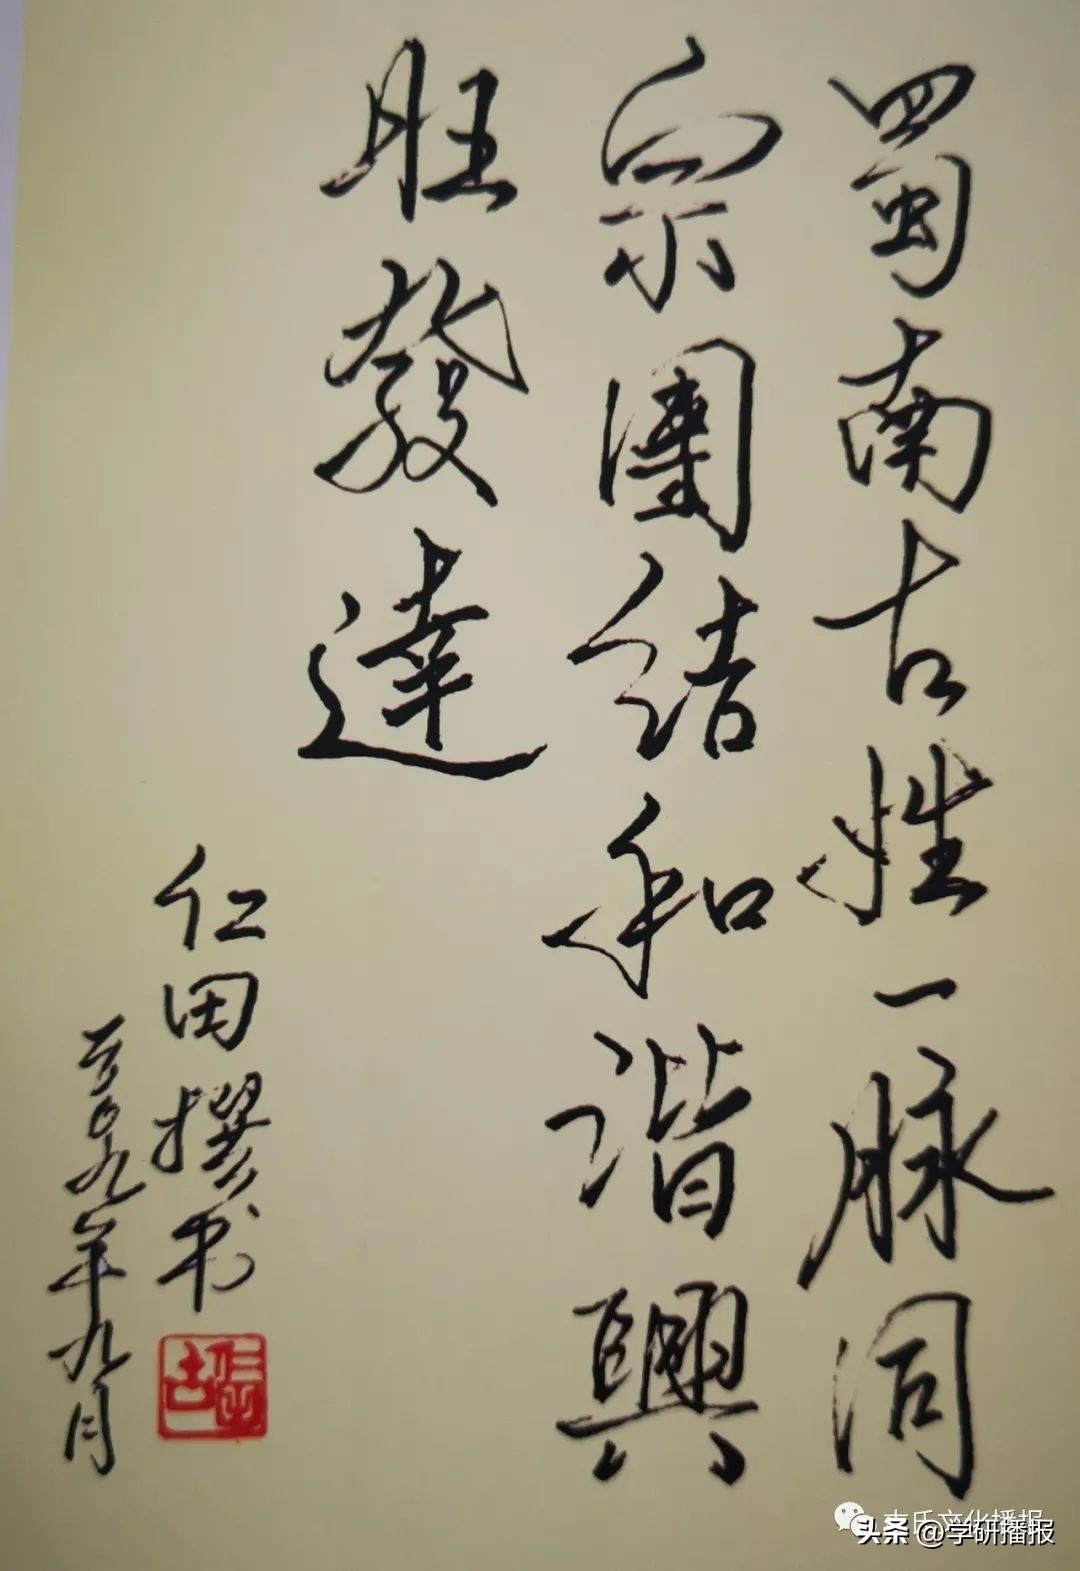 蜀南古姓一脉同
宗團结和谐興
旺發達
仁田撰书
二〇一九年九月
头条 @学研播报